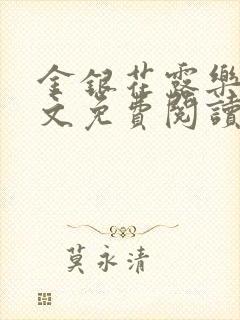 金銀花露樂
文免費閱讀
莫永清